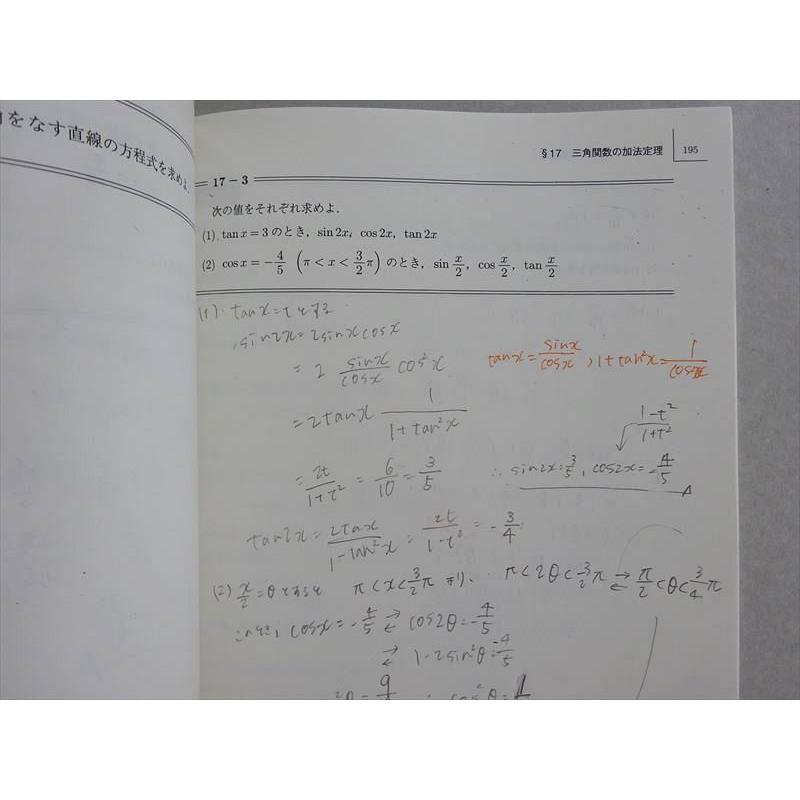 をなす直線の方程式を求めよ.
§17 三角関数の加法定理 195
17-3
次の値をそれぞれ求めよ.
(1). tan x = 3 のとき, sin 2x, cos 2x, tan 2x
(2) cos x = -4/5 (π < x < 3/2 π) のとき, sin x/2, cos x/2, tan x/2
(1). tan x = t とする
sin 2x = 2 sin x cos x
= 2 sin x/cos x cos²x
tan x = sin x/cos x, 1 + tan²x = 1/cos²x
= 2 tan x 1/(1 + tan²x)
(1-t²)/(1+t²)
= 2t/(1+t²) = 6/10 = 3/5
∴ sin 2x = 3/5, cos 2x = -4/5
tan 2x = 2 tan x/(1 - tan²x) = 2t/(1-t²) = -3/4
(2) x/2 = θ とおくと π < x < 3/2 π より. π < 2θ < 3/2 π ⇄ π/2 < θ < 3/4 π
cos x = -4/5 ⇄ cos 2θ = -4/5
⇄ 1 - 2 sin²θ = -4/5